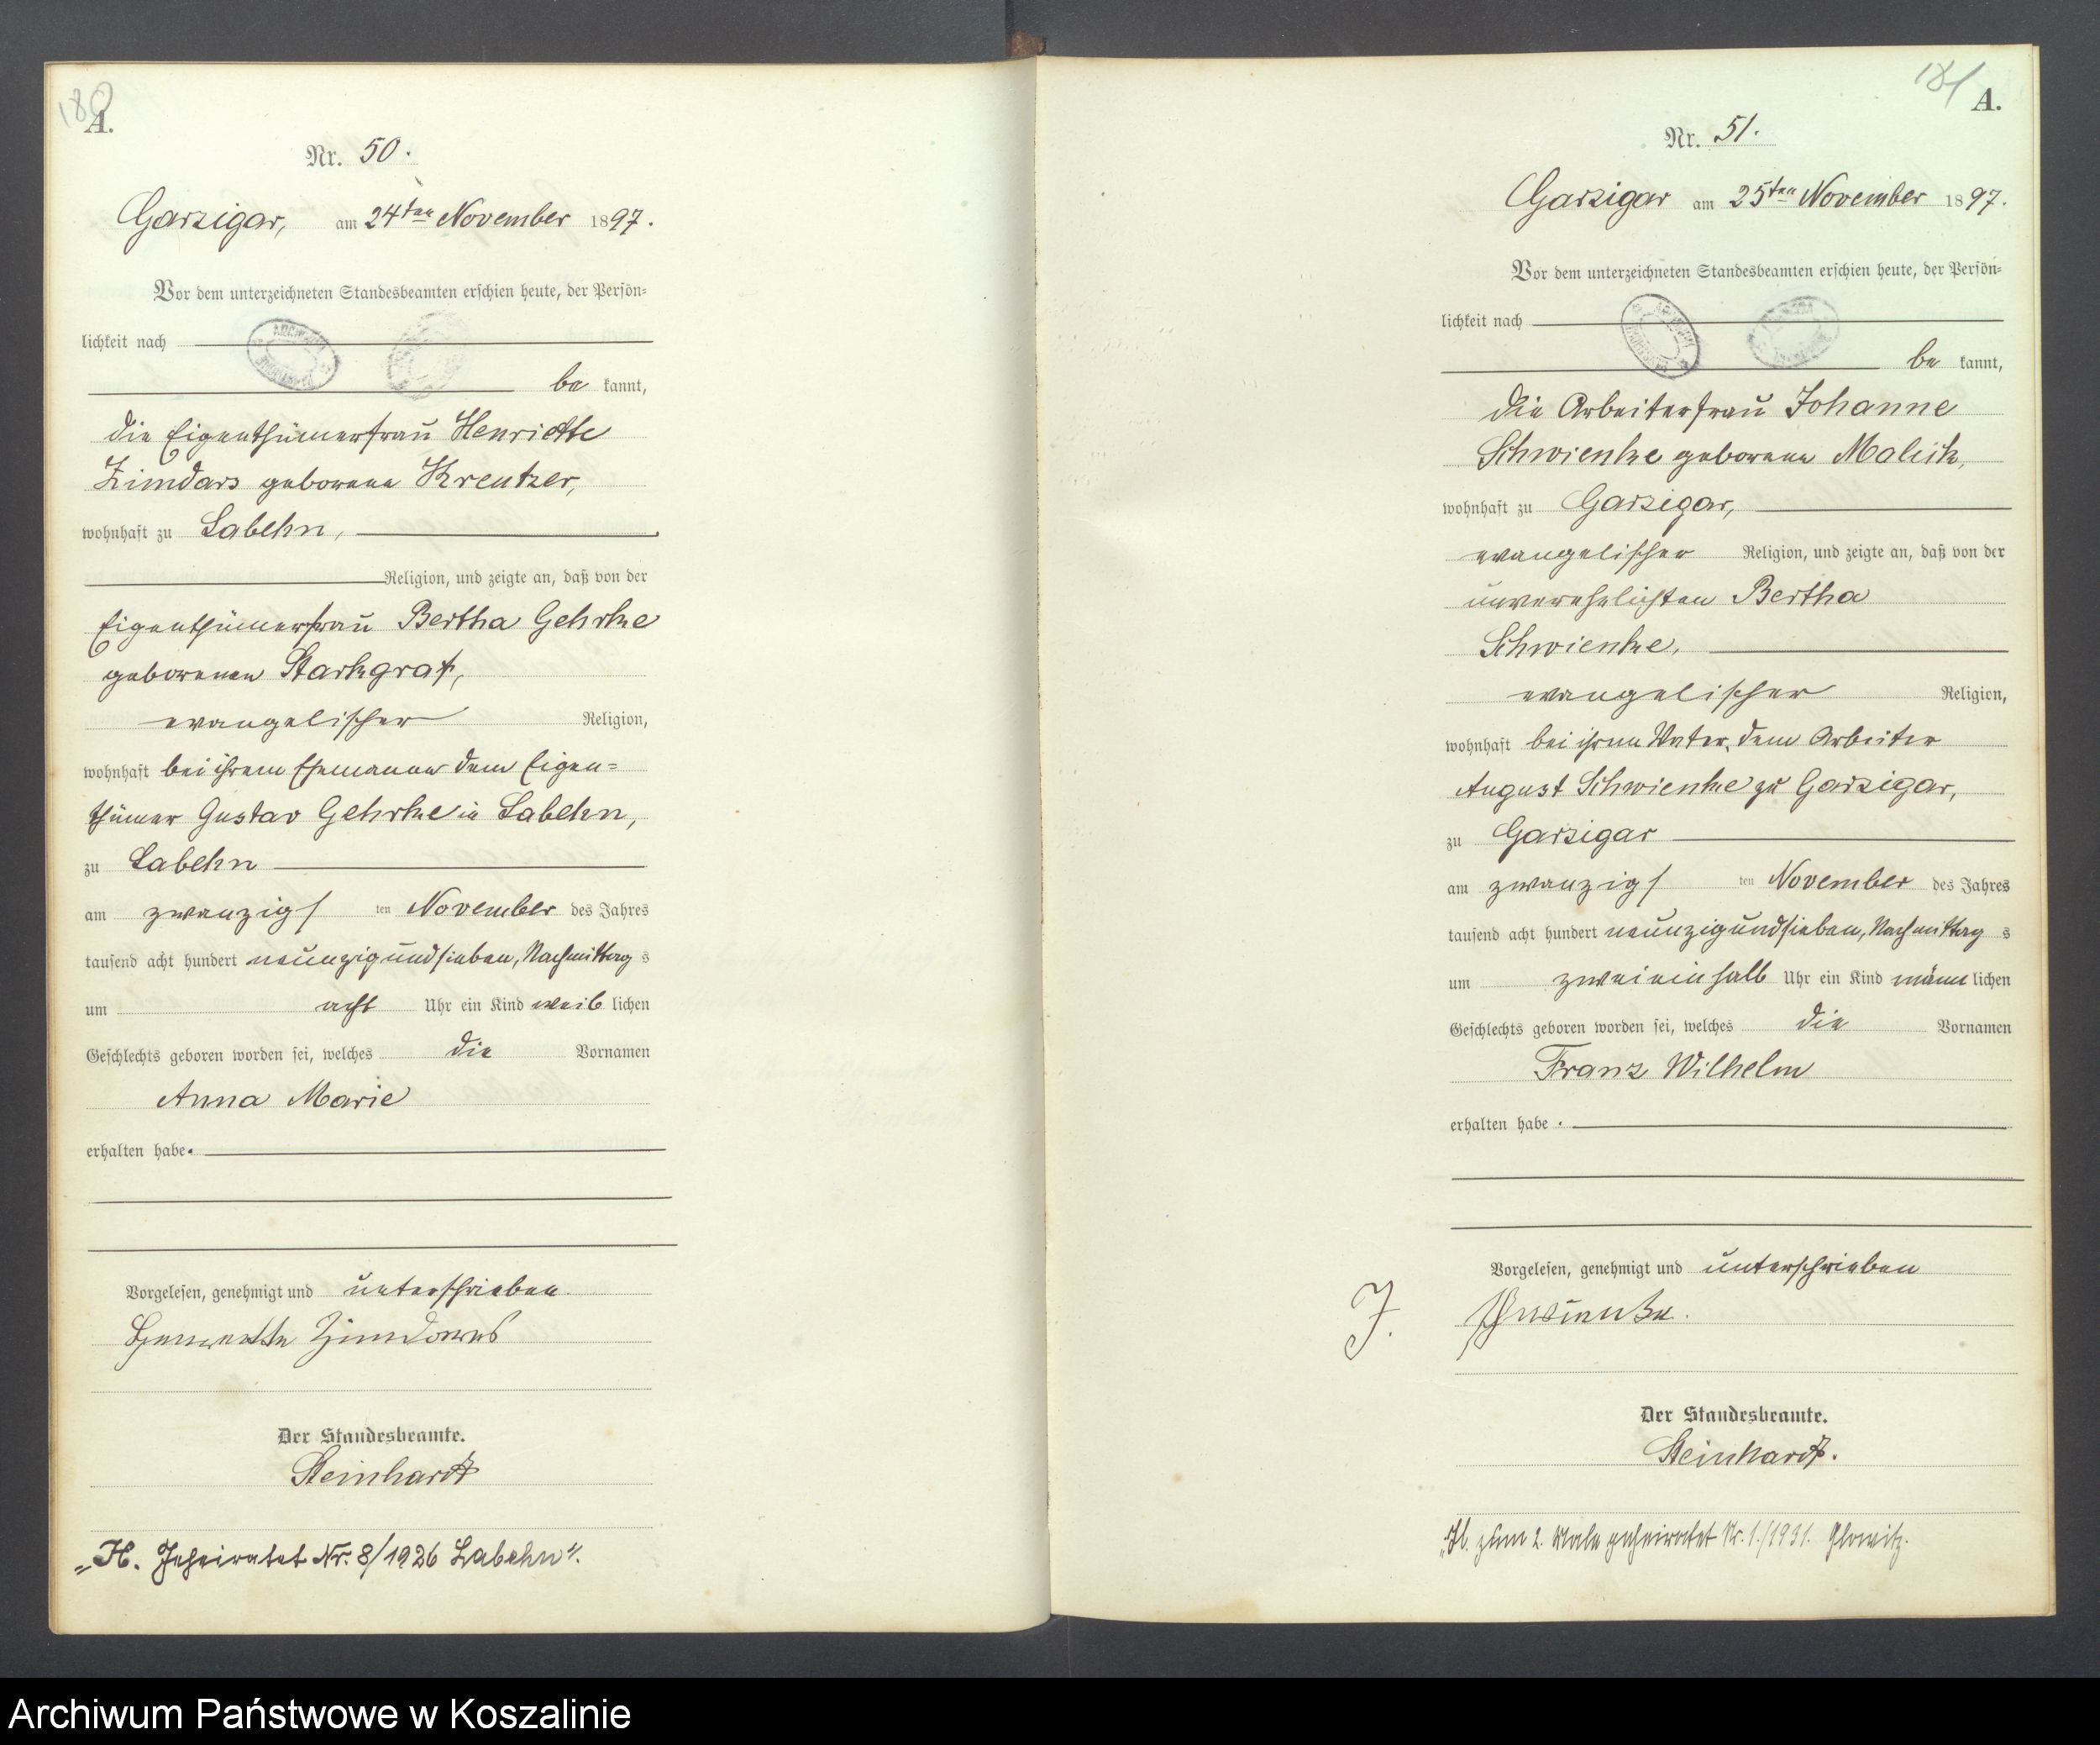 180
A.
Nr. 50.
Garzigar, am 24ten November 1897.
Vor dem unterzeichneten Standesbeamten erschien heute, der Persön-
lichkeit nach
be kannt,
die Eigenthümerfrau Henriette
Zimdars geborene Kreutzer,
wohnhaft zu Labehn,
Religion, und zeigte an, daß von der
Eigenthümerfrau Bertha Gehrke
geborenen Starkgraf,
evangelischer Religion,
wohnhaft bei ihrem Ehemanne dem Eigen-
thümer Gustav Gehrke in Labehn,
zu Labehn
am zwanzigs ten November des Jahres
tausend acht hundert neunzig und sieben, Nachmittag s
um acht Uhr ein Kind weib lichen
Geschlechts geboren worden sei, welches die Vornamen
Anna Marie
erhalten habe.
Vorgelesen, genehmigt und unterschrieben
Henriette Zimdars
Der Standesbeamte.
Steinhardt
„H. Geheiratet Nr. 8/1926 Labehn".
181
A.
Nr. 51.
Garzigar am 25ten November 1897.
Vor dem unterzeichneten Standesbeamten erschien heute, der Persön-
lichkeit nach
be kannt,
die Arbeiterfrau Johanne
Schwienke geborene Malick,
wohnhaft zu Garzigar,
evangelischer Religion, und zeigte an, daß von der
unverehelichten Bertha
Schwienke,
evangelischer Religion,
wohnhaft bei ihrem Vater, dem Arbeiter
August Schwienke zu Garzigar,
zu Garzigar
am zwanzigs ten November des Jahres
tausend acht hundert neunzig und sieben, Nachmittag s
um zwei ein halb Uhr ein Kind männ lichen
Geschlechts geboren worden sei, welches die Vornamen
Franz Wilhelm
erhalten habe.
Vorgelesen, genehmigt und unterschrieben
J. Schwienke.
Der Standesbeamte.
Steinhardt.
„H. zum 2. Male geheiratet Nr. 1./1931. Glowitz.
Archiwum Państwowe w Koszalinie